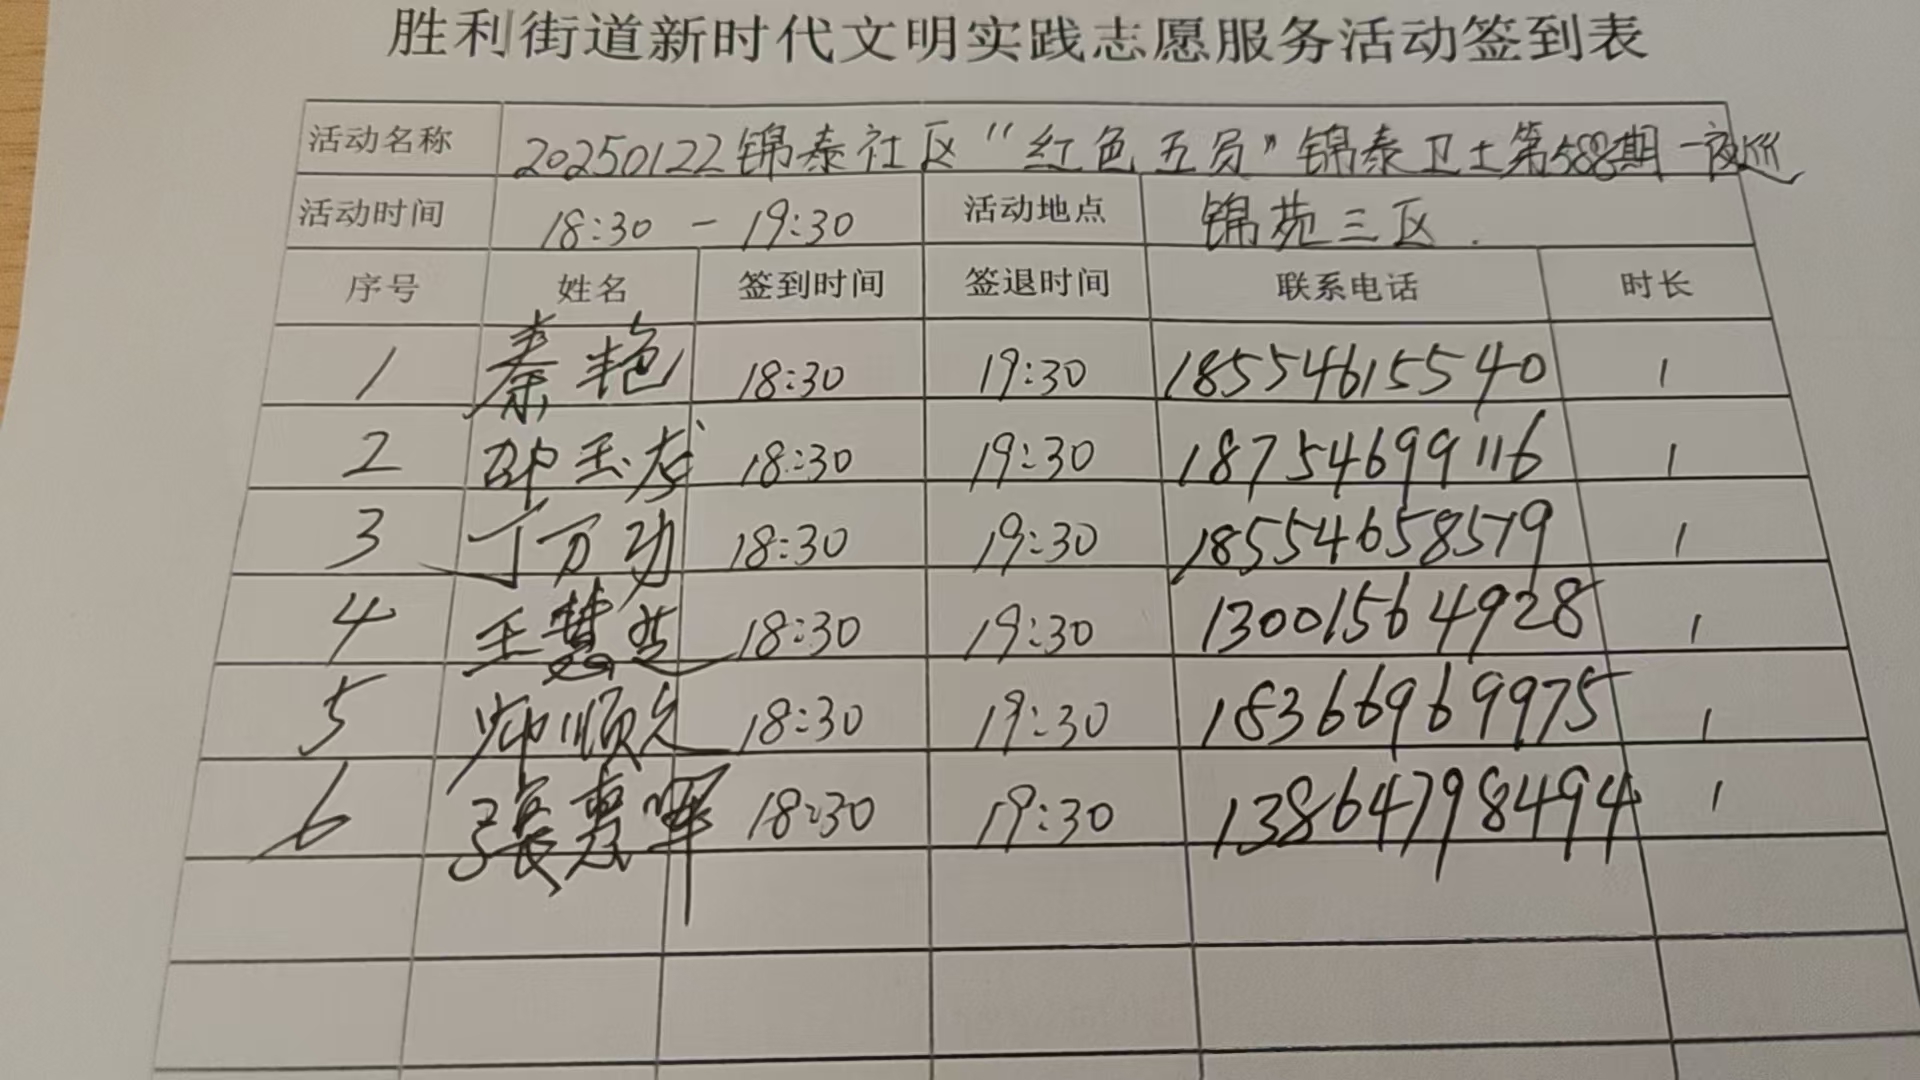 胜利街道新时代文明实践志愿服务活动签到表
活动名称 20250122锦泰社区“红色五员”锦泰卫士第588期一夜巡
活动时间 18:30-19:30 活动地点 锦苑三区.
序号 姓名 签到时间 签退时间 联系电话 时长
1 秦艳 18:30 19:30 18554615540 1
2 邵玉龙 18:30 19:30 18754699116 1
3 丁万功 18:30 19:30 18554658579 1
4 王慧芝 18:30 19:30 13001564928 1
5 18:30 19:30 18366969975 1
6 張惠軍 18:30 19:30 13864798494 1